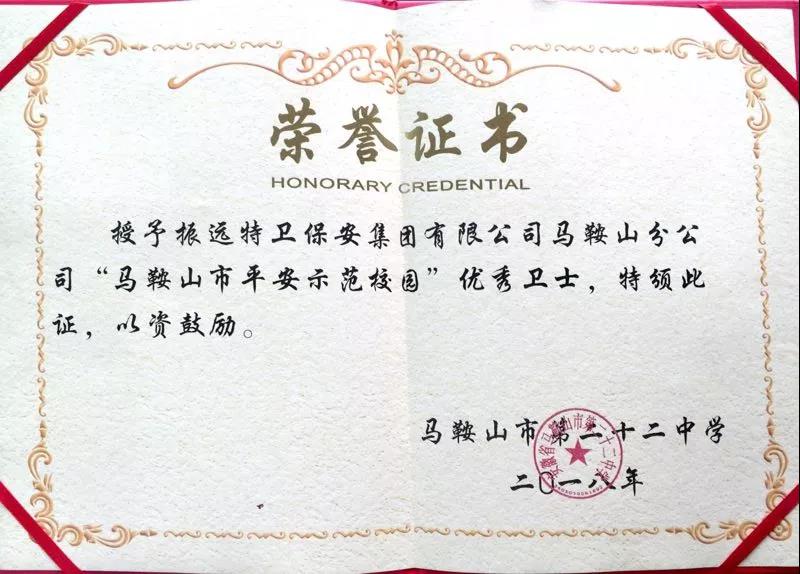 荣誉证书
HONORARY CREDENTIAL
授予振远特卫保安集团有限公司马鞍山分公
司“马鞍山市平安示范校园”优秀卫士,特颁此
证,以资鼓励。
马鞍山市第二十二中学
安徽省马鞍山市第二十二中学
二〇一八年